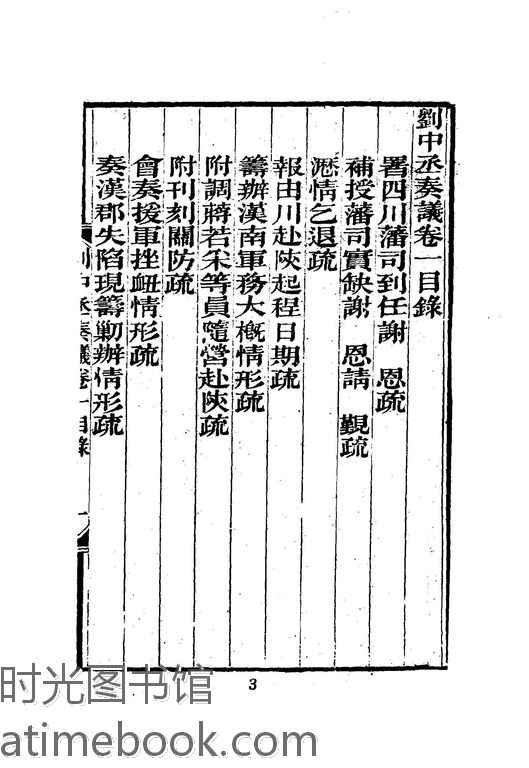 劉中丞奏議卷一目錄
署四川藩司到任謝 恩疏
補授藩司實缺謝 恩請 覲疏
瀝情乞退疏
報由川赴陝起程日期疏
籌辦漢南軍務大概情形疏
附調蔣若采等員隨營赴陝疏
附刊刻關防疏
會奏援軍挫衄情形疏
奏漢郡失陷現籌勦辦情形疏
劉中丞奏議卷一目錄
3
时光图书馆
atimebook.com